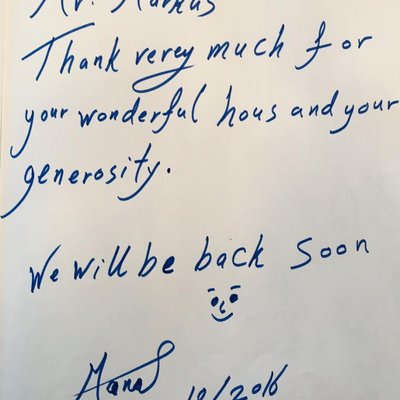 Mr. Markus
Thank verey much for
your wonderful hous and your
generosity.
We will be back soon
10/2016